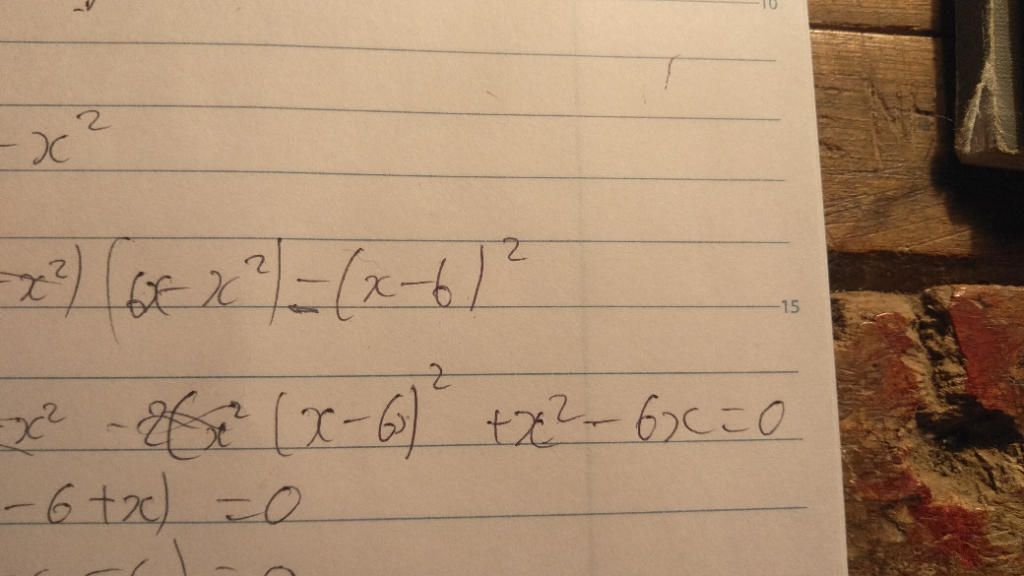 10
- x²
- x²) (6x - x²) = (x - 6)²
15
- x² - (x - 6)² + x² - 6x = 0
- 6 + x) = 0